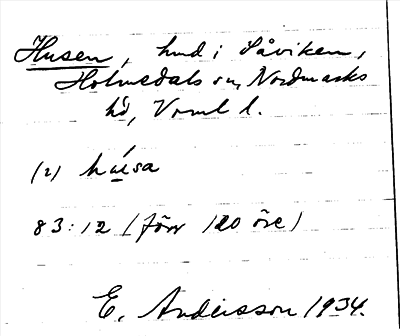 Husen, hmd i Såviken,
Holmedals sn, Nordmarks
hd, Vrml l.
(2) hu̯sa
83:12 (förr 120 öre)
E. Andersson 1934.